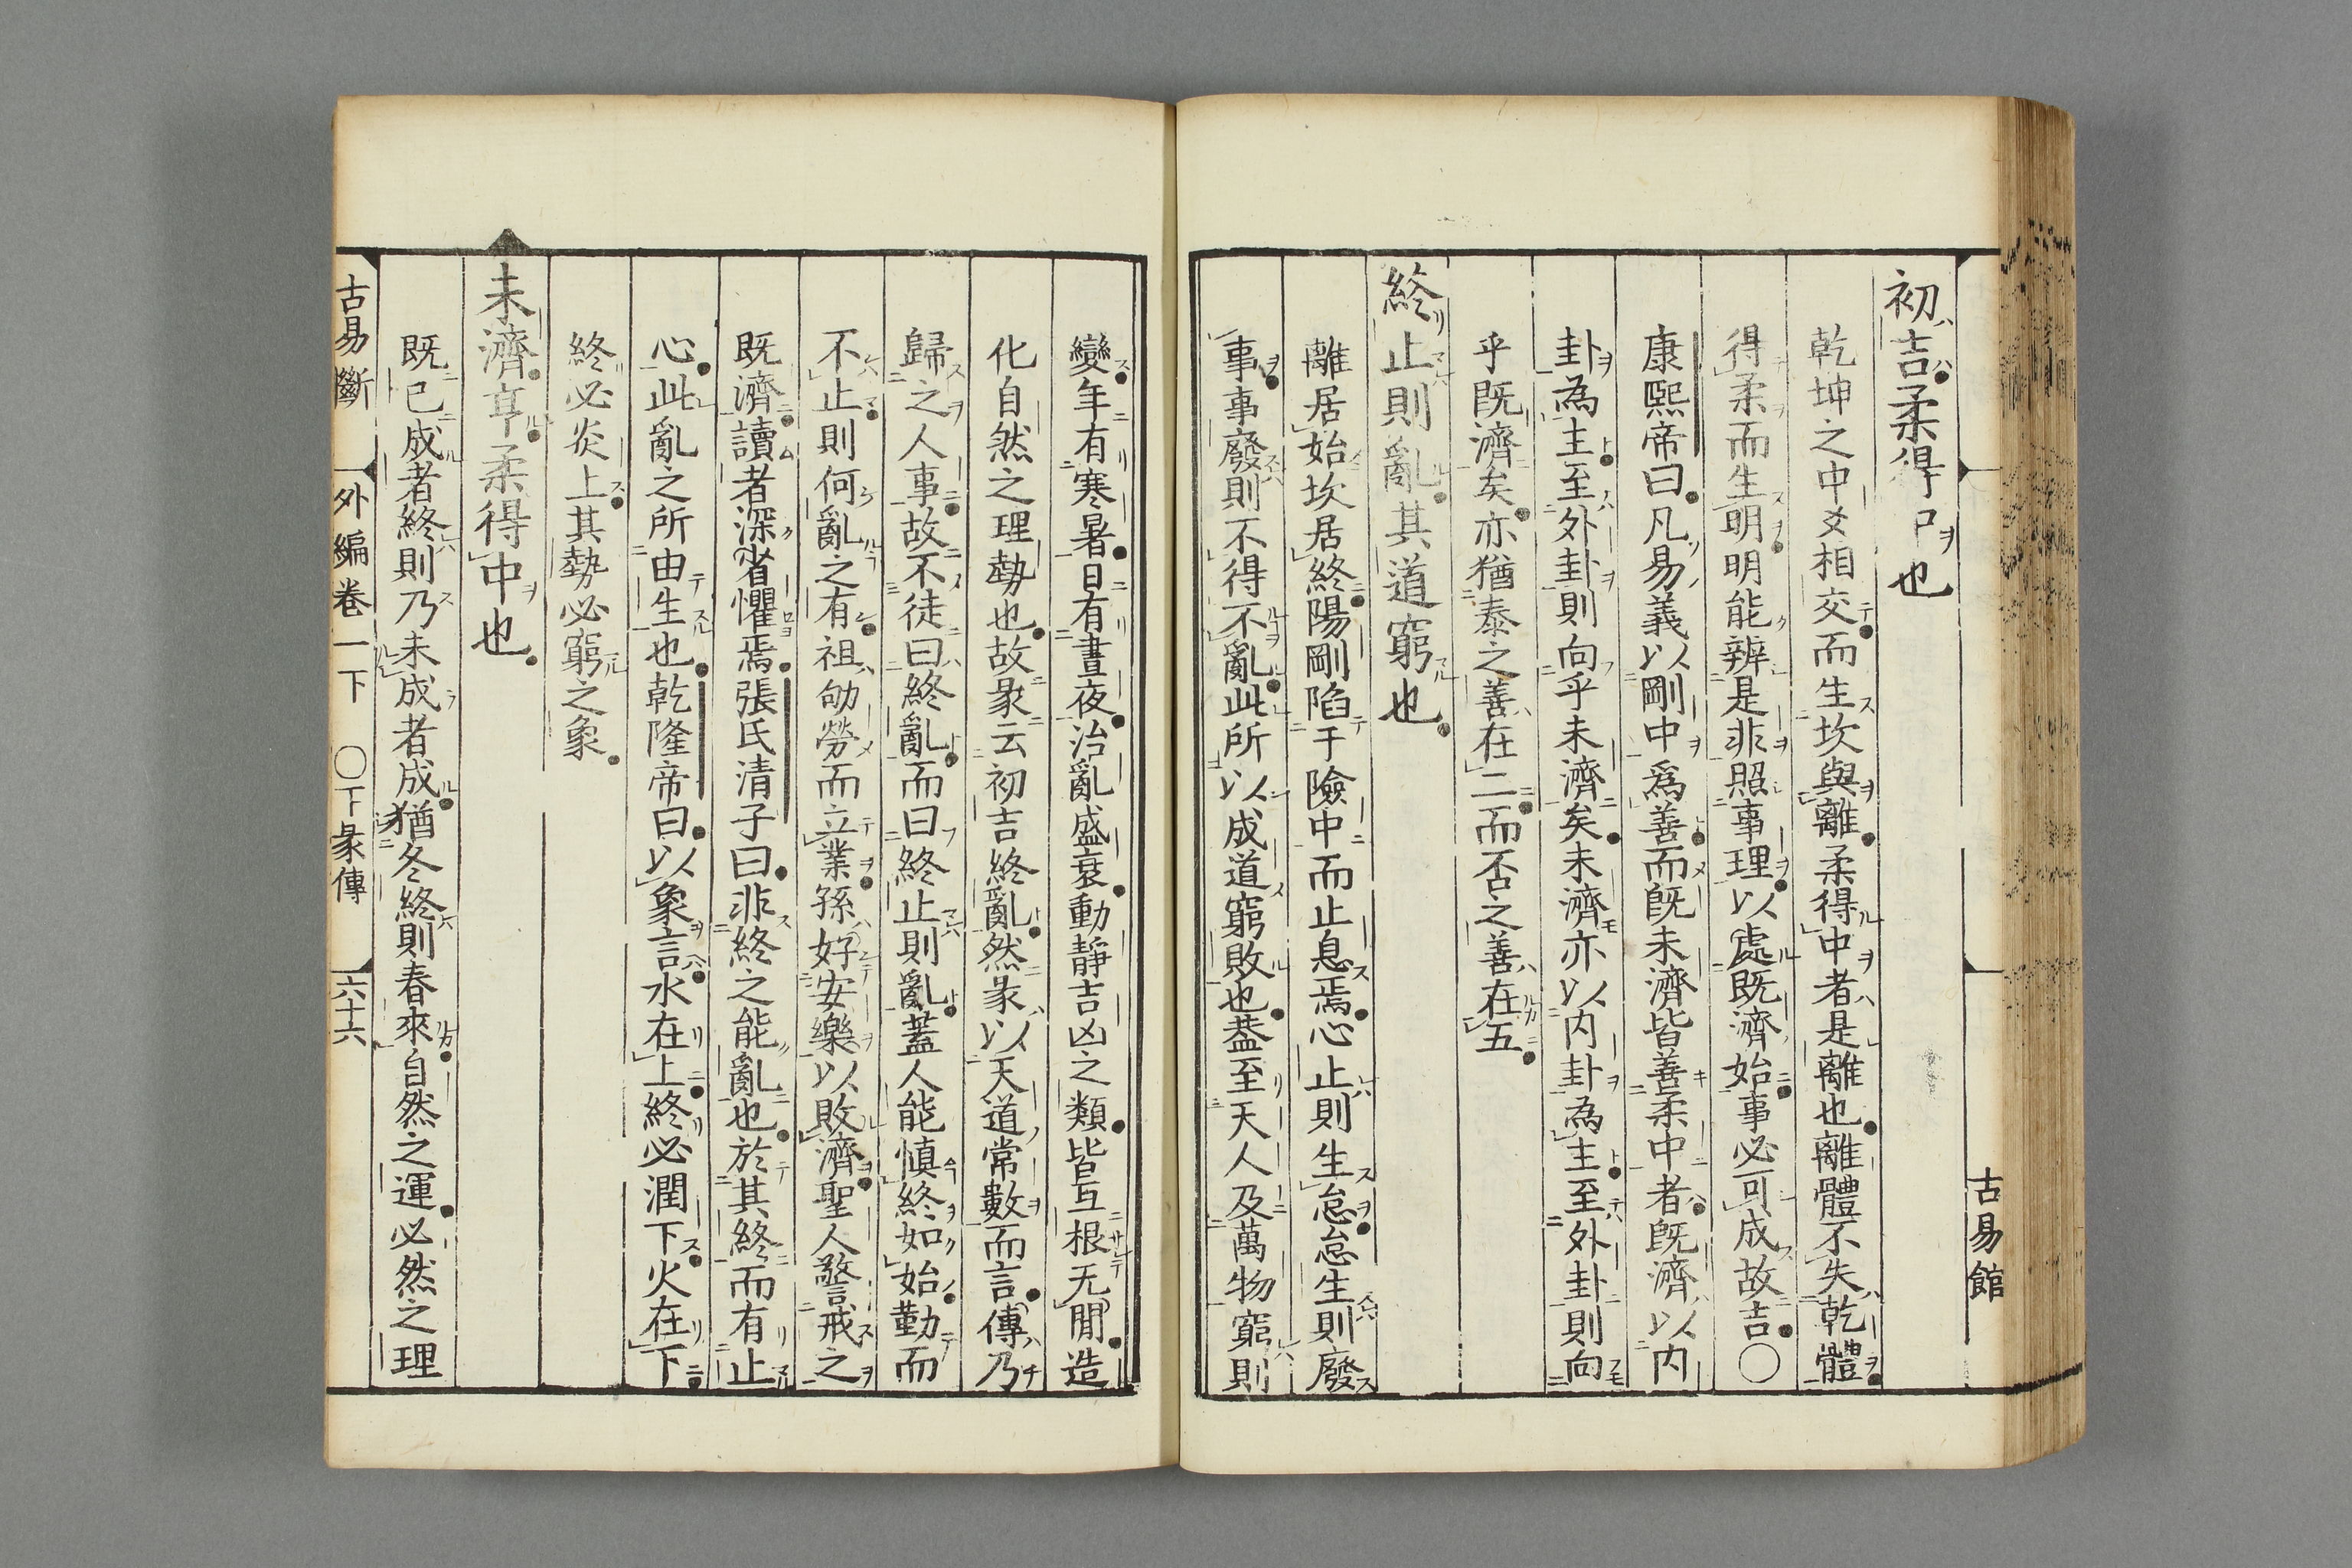 古易館
初吉柔得中也
乾坤之中爻相交而生坎與離柔得中者是離也離體不失乾體
得柔而生明明能辨是非照事理以處既濟始事必可成故吉〇
康熙帝曰凡易義以剛中爲善而既未濟皆善柔中者既濟以内
卦為主至外卦則向乎未濟矣未濟亦以内卦為主至外卦則向
乎既濟矣亦猶泰之善在二而否之善在五
終止則亂其道窮也
離居始坎居終陽剛陷于險中而止息焉心止則生怠怠生則廢
事事廢則不得不亂此所以成道窮敗也蓋至天人及萬物窮則
變年有寒暑日有晝夜治亂盛衰動靜吉凶之類皆互根无間造
化自然之理勢也故彖云初吉終亂然彖以天道常數而言傳乃
歸之人事故不徒曰終亂而曰終止則亂蓋人能慎終如始勤而
不止則何亂之有祖劬勞而立業孫好安樂以敗濟聖人警戒之
既濟讀者深省懼焉張氏清子曰非終之能亂也於其終而有止
心此亂之所由生也乾隆帝曰以象言水在上終必潤下火在下
終必炎上其勢必窮之象
未濟亨柔得中也
既已成者終則乃未成者成猶冬終則春來自然之運必然之理
古易斷 外編卷一下 〇下彖傳 六十六